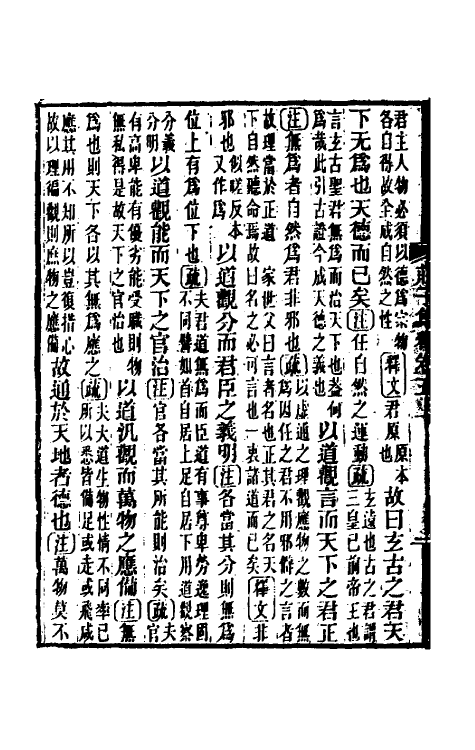 君主人物必須以德爲宗物各自得故全成自然之性[釋文]君原原本也故曰玄古之君天
下无爲也天德而已矣[注]任自然之運動[疏]玄遠也古之君謂三皇已前帝王也
言玄古聖君無爲而治天下也蓋何爲哉此引古證今成天德之義也以道觀言而天下之君正
[注]無爲者自然爲君非邪也[疏]以虛通之理觀應物之數而無爲因任之君不用邪僻之言者
故理當於正道家世父曰言者名也正其君之名天下自然聽命焉故曰名之必可言也一衷諸道而已矣[釋文]非
邪也似嗟反本又作爲以道觀分而君臣之義明[注]各當其分則無爲
位上有爲位下也[疏]夫君道無爲而臣道有事尊卑勞逸理固不同譬如首自居上足自居下用道觀察
分義分明以道觀能而天下之官治[注]官各當其所能則治矣[疏]夫官
有高卑能有優劣能受職則物無私得是故天下之官治也以道汎觀而萬物之應備[注]無
爲也則天下各以其無爲應之[疏]夫大道生物性情不同率已所以悉皆備足或走或飛咸
應其用不知所以豈復措心故以理徧觀則庶物之應備故通於天地者德也[注]萬物莫不